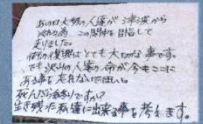 あの日大勢の人達が津波から
逃れる為、この関所を目指して
走りました。
街の復興はとても大切な事です。
でも沢山の人達の命が今もここに
ある事を忘れないでほしい。
死んだら終りですか？
生き残った私達に出来る事を考えます。